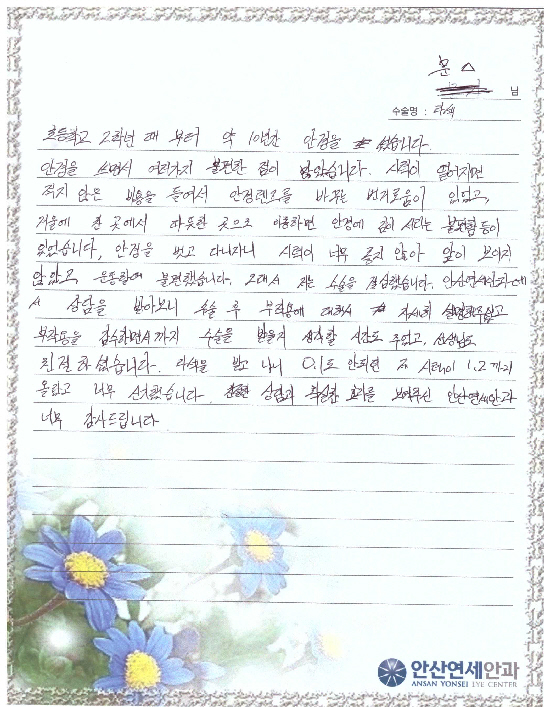 문 △
님
수술명 : 라섹
초등학교 2학년 때 부터 약 10년간 안경을 썼습니다.
안경을 쓰면서 여러가지 불편한 점이 많았습니다. 시력이 떨어지면
적지 않은 비용을 들여서 안경렌즈를 바꾸는 번거로움이 있었고,
겨울에 찬 곳에서 따뜻한 곳으로 이동하면 안경에 김이 서리는 불편함 등이
있었습니다. 안경을 벗고 다니자니 시력이 너무 좋지 않아 앞이 보이지
않았고 불편했습니다. 그래서 저는 수술을 결심했습니다. 안산연세안과에
서 상담을 받아보니 수술 후 부작용에 대해서 자세히 설명해주셨고
부작용을 감수하면서까지 수술을 받을지 생각할 시간도 주었고, 선생님도
친절하셨습니다. 라섹을 받고 나니 0.1도 안되던 제 시력이 1.2까지
올랐고 너무 신기했습니다. 상담과 확실한 효과를 보여주신 안산연세안과
너무 감사드립니다
안산연세안과
ANSAN YONSEI EYE CENTER